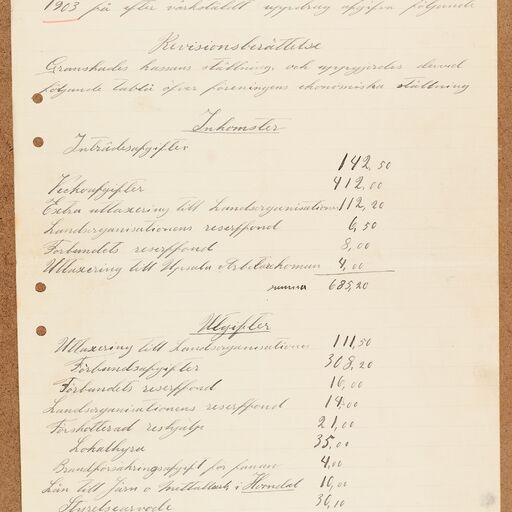 1903 på efter värkstäldt uppdrag afgifva följande
Revisionsberättelse
Granskades kassans ställning, och uppgjordes derved
följande tablå öfver föreningens ekonomiska ställning
Inkomster
Inträdesafgifter 142,50
Veckoafgifter 412,00
Extra uttaxering till Landsorganisationen 112,20
Landsorganisationens reservfond 6,50
Förbundets reservfond 8,00
Uttaxering till Upsala Arbetarekomun 4,00
summa 685,20
Utgifter
Uttaxering till Landsorganisationen 111,50
Förbundsafgifter 308,20
Förbundets reservfond 16,00
Landsorganisationens reservfond 14,00
Förskotterad reshjälp 21,00
Lokalhyra 35,00
Brandförsäkringsafgift för fanan 4,00
Lån till Järn o Metallarb. i 10,00
Styrelsearvode 30,10